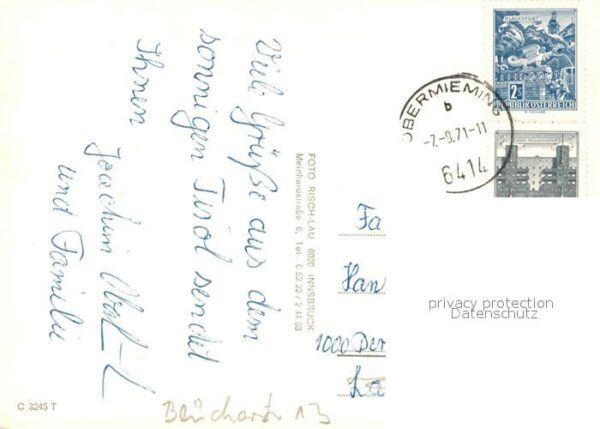 Viele Grüße aus dem
sonnigen Tirol sendet
Ihnen
Joachim
und Familie
FOTO RISCH-LAU 6020 INNSBRUCK
Meinhardstraße 6, Tel. 0 52 22 / 2 44 33
KLAGENFURT
2 S
REPUBLIK ÖSTERREICH
OBERMIEMING
b
-7.-9.71-11
6414
Fa
Han
1000 Ber
La
privacy protection
Datenschutz
C 3245 T